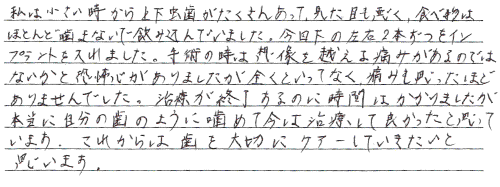 私は小さい時から上下虫歯がたくさんあって、見た目も悪く、食べ物は
ほとんど噛まないで飲み込んでいました。今回下の左右2本ずつをイン
プラントを入れました。手術の時は想像を越える痛みがあるのでは
ないかと恐怖心がありましたが全くといってなく、痛みも思ったほど
ありませんでした。治療が終了するのに時間はかかりましたが
本当に自分の歯のように噛めて今は治療して良かったと思って
います。これからは歯を大切にケアーしていきたいと
思います。